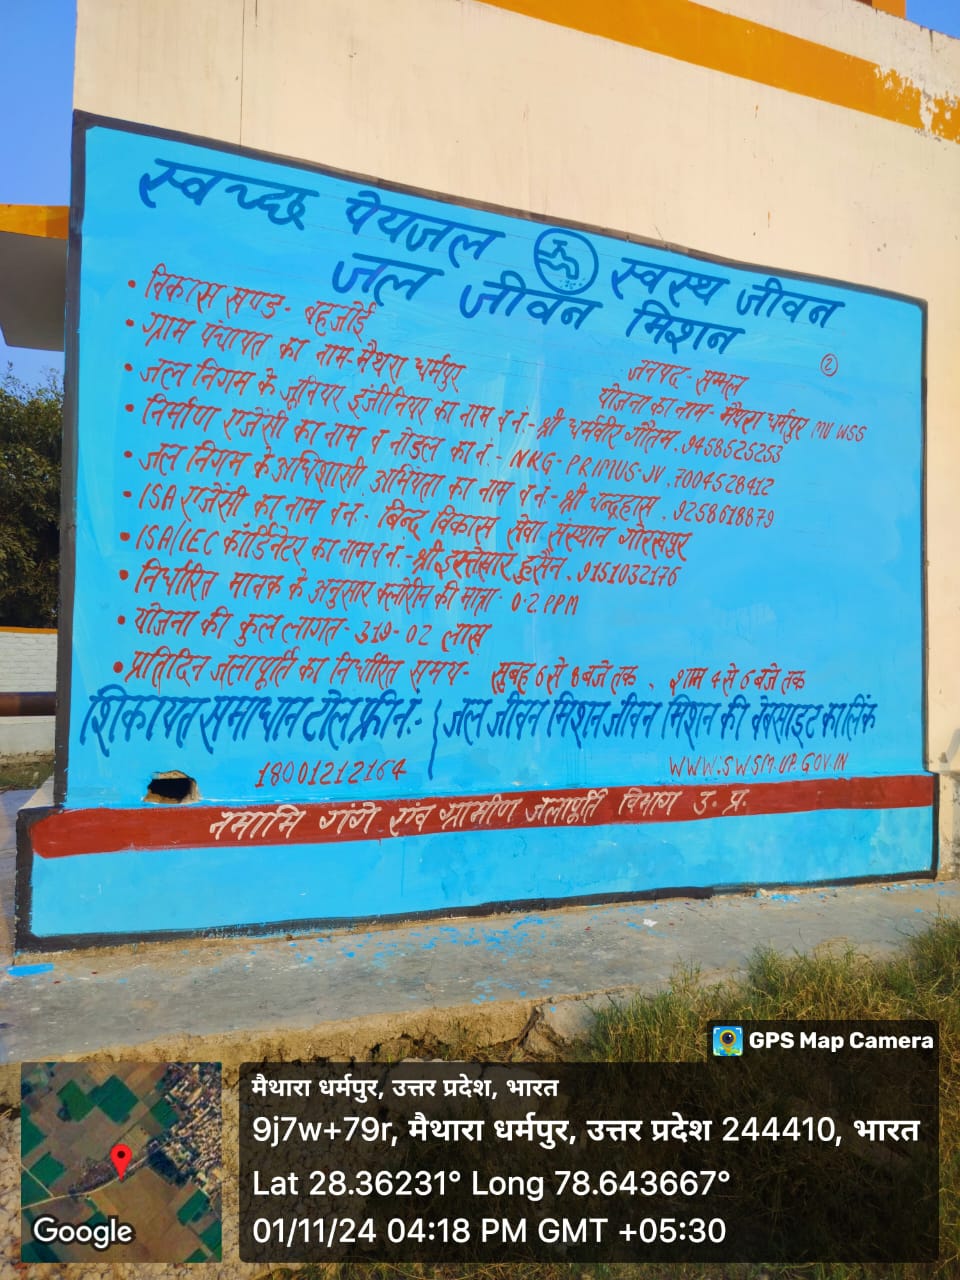 स्वच्छ पेयजल स्वस्थ जीवन
जल जीवन मिशन
②
• विकास खण्ड - बहजोई
जनपद - सम्भल
• ग्राम पंचायत का नाम - मैथरा धर्मपुर
योजना का नाम - मैथरा धर्मपुर MV WSS
• जल निगम के जूनियर इंजीनियर का नाम व नं. - श्री धर्मवीर गौतम . 9458525253
• निर्माण एजेंसी का नाम व नोडल का नं. - NKG - PRIMUS - JV . 7004528412
• जल निगम के अधिशासी अभियंता का नाम व नं - श्री चन्द्रहास . 9258618879
• ISA एजेंसी का नाम व नं. - बिन्द विकास सेवा संस्थान गोरखपुर
• ISA/IEC कॉर्डिनेटर का नाम व नं. - श्री हुसैन . 9151032176
• निर्धारित मानक के अनुसार क्लोरीन की मात्रा - 0.2 PPM
• योजना की कुल लागत - 319-02 लाख
• प्रतिदिन जलापूर्ति का निर्धारित समय - सुबह 6 से 8 बजे तक , शाम 4 से 6 बजे तक
शिकायत समाधान टोल फ्री नं. -
18001212164
जल जीवन मिशन जीवन मिशन की वेबसाइट का लिंक
WWW.SWSM.UP.GOV.IN
नमामि गंगे एंव ग्रामीण जलापूर्ति विभाग उ. प्र.
GPS Map Camera
मैथारा धर्मपुर, उत्तर प्रदेश, भारत
9j7w+79r, मैथारा धर्मपुर, उत्तर प्रदेश 244410, भारत
Lat 28.36231° Long 78.643667°
01/11/24 04:18 PM GMT +05:30
Google